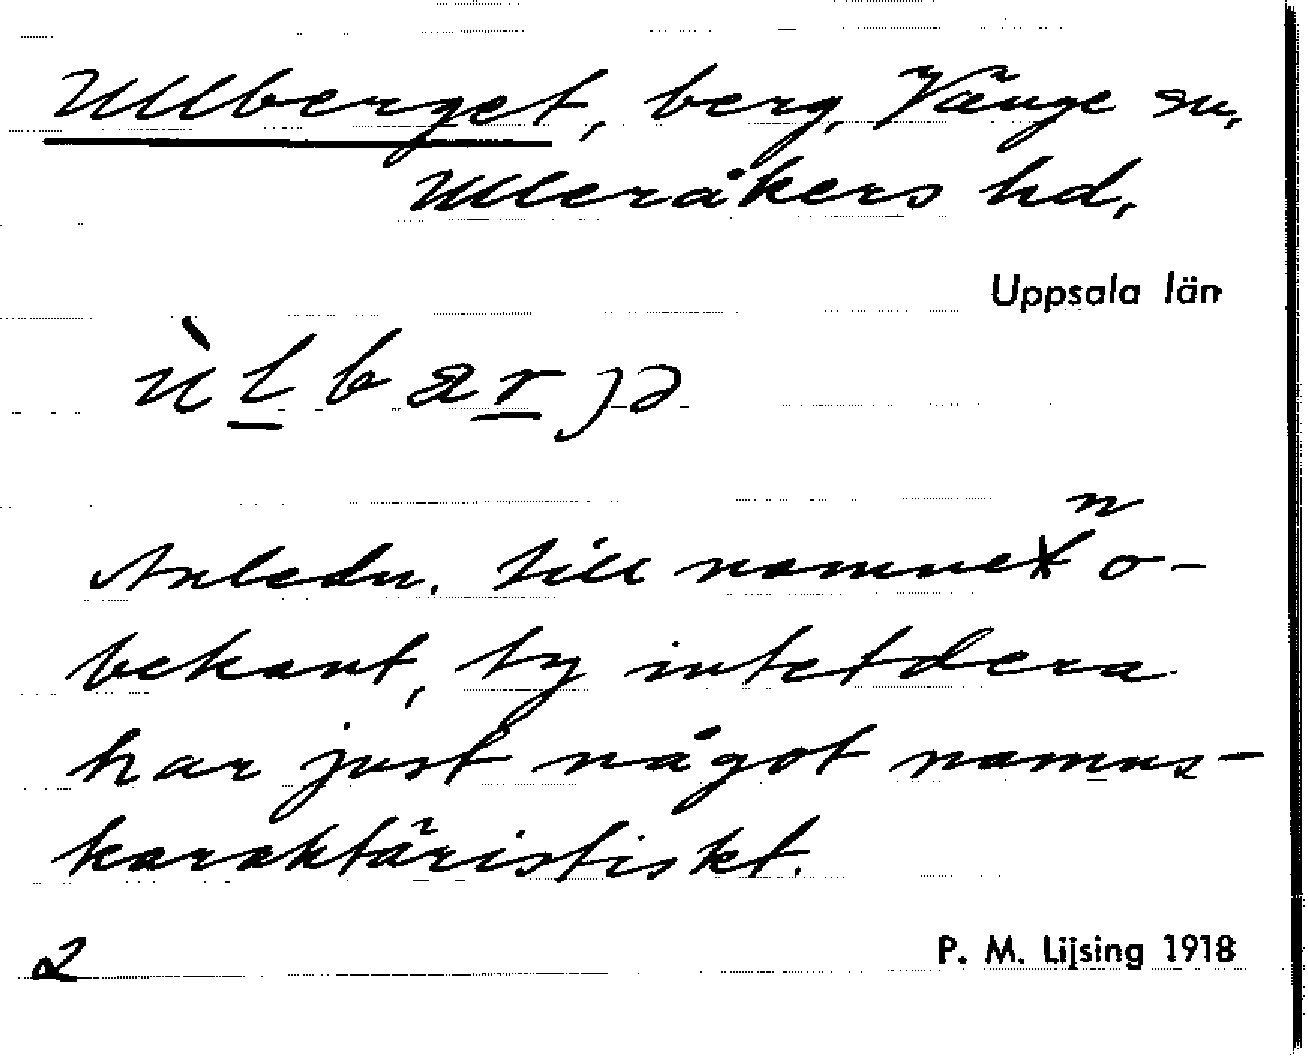 Ullberget, berg, Vänge sn,
Ulleråkers hd,
Uppsala län
ùlbærjə
Anledn. till namnen o-
bekant, ty intetdera
har just något namns-
karaktäristiskt.
2
P. M. Lijsing 1918